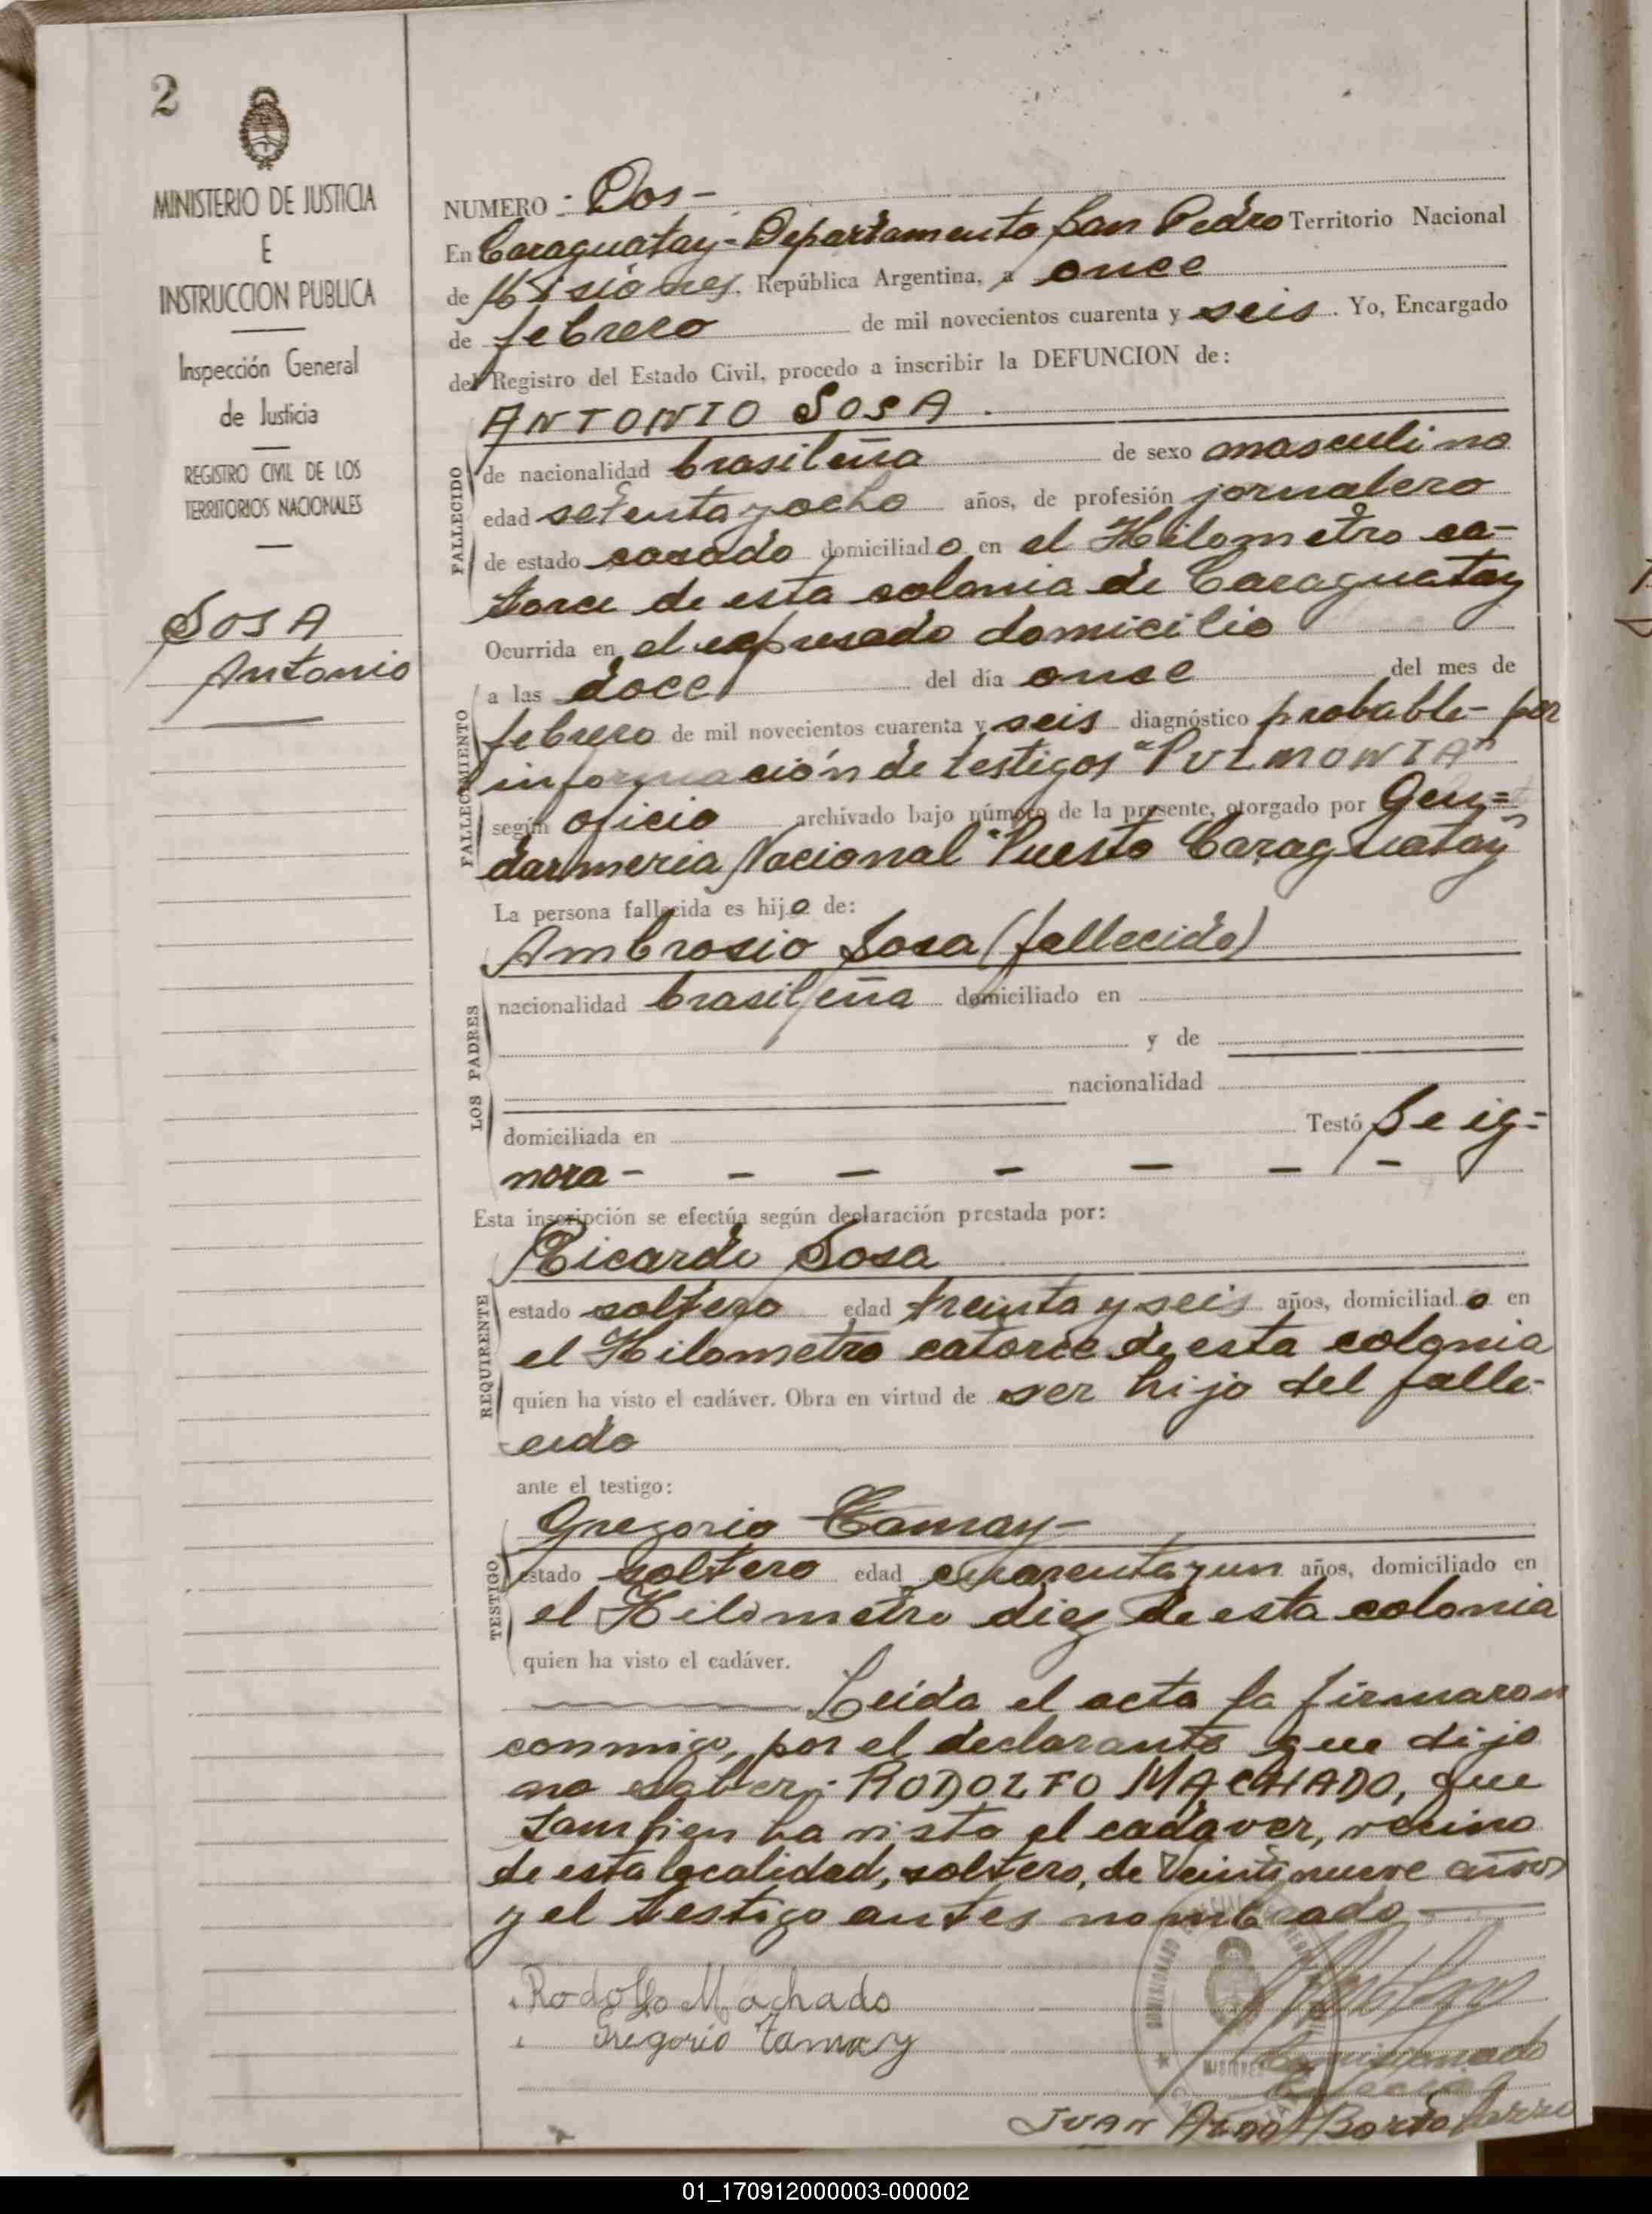 2
MINISTERIO DE JUSTICIA
E
INSTRUCCION PUBLICA
Inspección General
de Justicia
REGISTRO CIVIL DE LOS
TERRITORIOS NACIONALES
SOSA
Antonio
NUMERO: Dos-
En Caraguatay-Departamento San Pedro Territorio Nacional
de Misiones, República Argentina, a once
de febrero de mil novecientos cuarenta y seis. Yo, Encargado
del Registro del Estado Civil, procedo a inscribir la DEFUNCION de:
ANTONIO SOSA.
FALLECIDO
de nacionalidad brasileña de sexo masculino
edad setenta y ocho años, de profesión jornalero
de estado casado domiciliado en el Kilometro ca-
torce de esta colonia de Caraguatay
Ocurrida en el expresado domicilio
FALLECIMIENTO
a las doce del día once del mes de
febrero de mil novecientos cuarenta y seis diagnóstico probable- por
información de testigos "PULMONIA"
según oficio archivado bajo número de la presente, otorgado por Gen=
darmeria Nacional "Puesto Caraguatay"
La persona fallecida es hijo de:
Ambrosio Sosa (fallecido)
LOS PADRES
nacionalidad brasileña domiciliado en
y de
nacionalidad
domiciliada en Testó Se ig=
nora - - - - - - -
Esta inscripción se efectúa según declaración prestada por:
Ricardo Sosa
REQUIRENTE
estado soltero edad treinta y seis años, domiciliado en
el Kilometro catorce de esta colonia
quien ha visto el cadáver. Obra en virtud de ser hijo del falle-
cido
ante el testigo:
Gregorio Tamay-
TESTIGO
estado soltero edad cuarenta y un años, domiciliado en
el Kilometro diez de esta colonia
quien ha visto el cadáver.
Leida el acta la firmaron
conmigo, por el declarante que dijo
no saber: RODOLFO MACHADO, que
tambien ha visto el cadaver, vecino
de esta localidad, soltero, de veintinueve años
y el testigo antes nombrado
Rodolfo Machado
Gregorio Tamay
MISIONES
JUAN
01_170912000003-000002